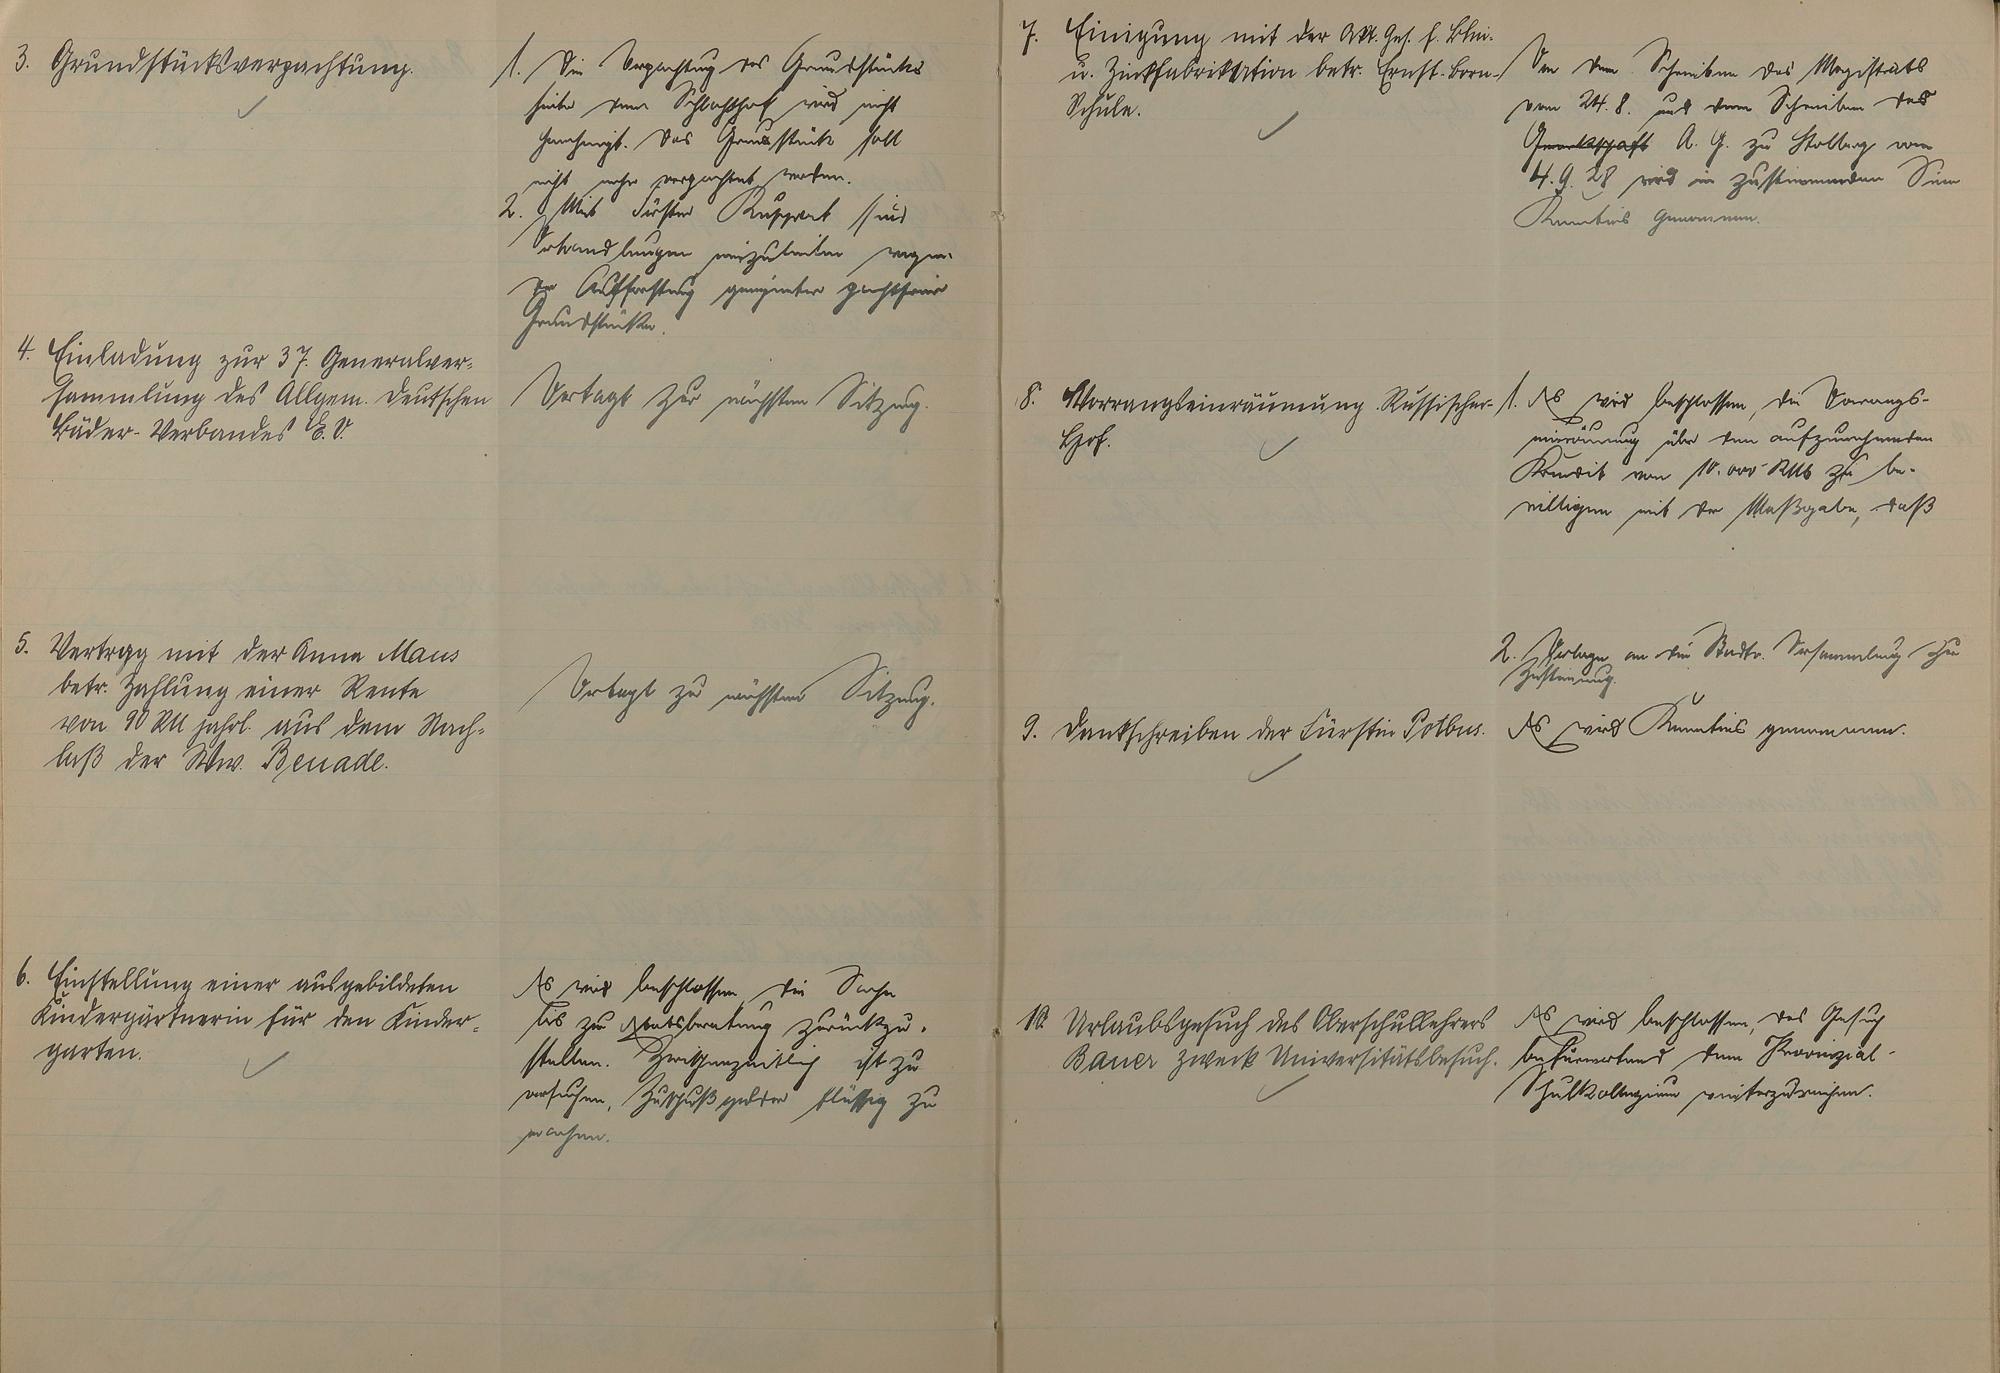 3. Grundstücksverpachtung.
1. Die Verpachtung des Grundstücks
hinter dem Schlachthof wird nicht
genehmigt. Das Grundstück soll
nicht mehr verpachtet werden.
2. Mit Förster Ruhprat sind
Verhandlungen einzuleiten wegen
der Aufforstung geeigneter pachtfreier
Grundstücke.
4. Einladung zur 37. Generalver-
sammlung des Allgem. Deutschen
Bäder-Verbandes E.V.
Vertagt zur nächsten Sitzung.
5. Vertrag mit der Anna Maus
betr. Zahlung einer Rente
von 90 RM jährl. aus dem Nach-
laß der Ww. Benade.
Vertagt zur nächsten Sitzung.
6. Einstellung einer ausgebildeten
Kindergärtnerin für den Kinder-
garten.
Es wird beschlossen, die Sache
bis zur Etatsberatung zurückzu-
stellen. Zwischenzeitlich ist zu
versuchen, Zuschußgelder flüssig zu
machen.
7. Einigung mit der Akt. Ges. f. Blei-
u. Zinkfabrikation betr. Ernst-Born-
Schule.
Von dem Schreiben des Magistrats
vom 24.8. und dem Schreiben des
Gewerkschaft A. G. zu Stolberg vom
4.9.28 wird in zustimmendem Sinn
Kenntnis genommen.
8. Vorrangseinräumung Russischer-
Hof.
1. Es wird beschlossen, die Vorrangs-
einräumung über den aufzunehmenden
Kredit von 10.000 RM zu be-
willigen mit der Maßgabe, daß
2. Vorlage an die Stadtv. Versammlung zur
Zustimmung.
9. Dankschreiben der Fürstin Putbus.
Es wird Kenntnis genommen.
10. Urlaubsgesuch des Oberschullehrers
Bauer zweck Universitätsbesuch.
Es wird beschlossen, das Gesuch
befürwortend dem Provinzial-
Schulkollegium weiterzureichen.